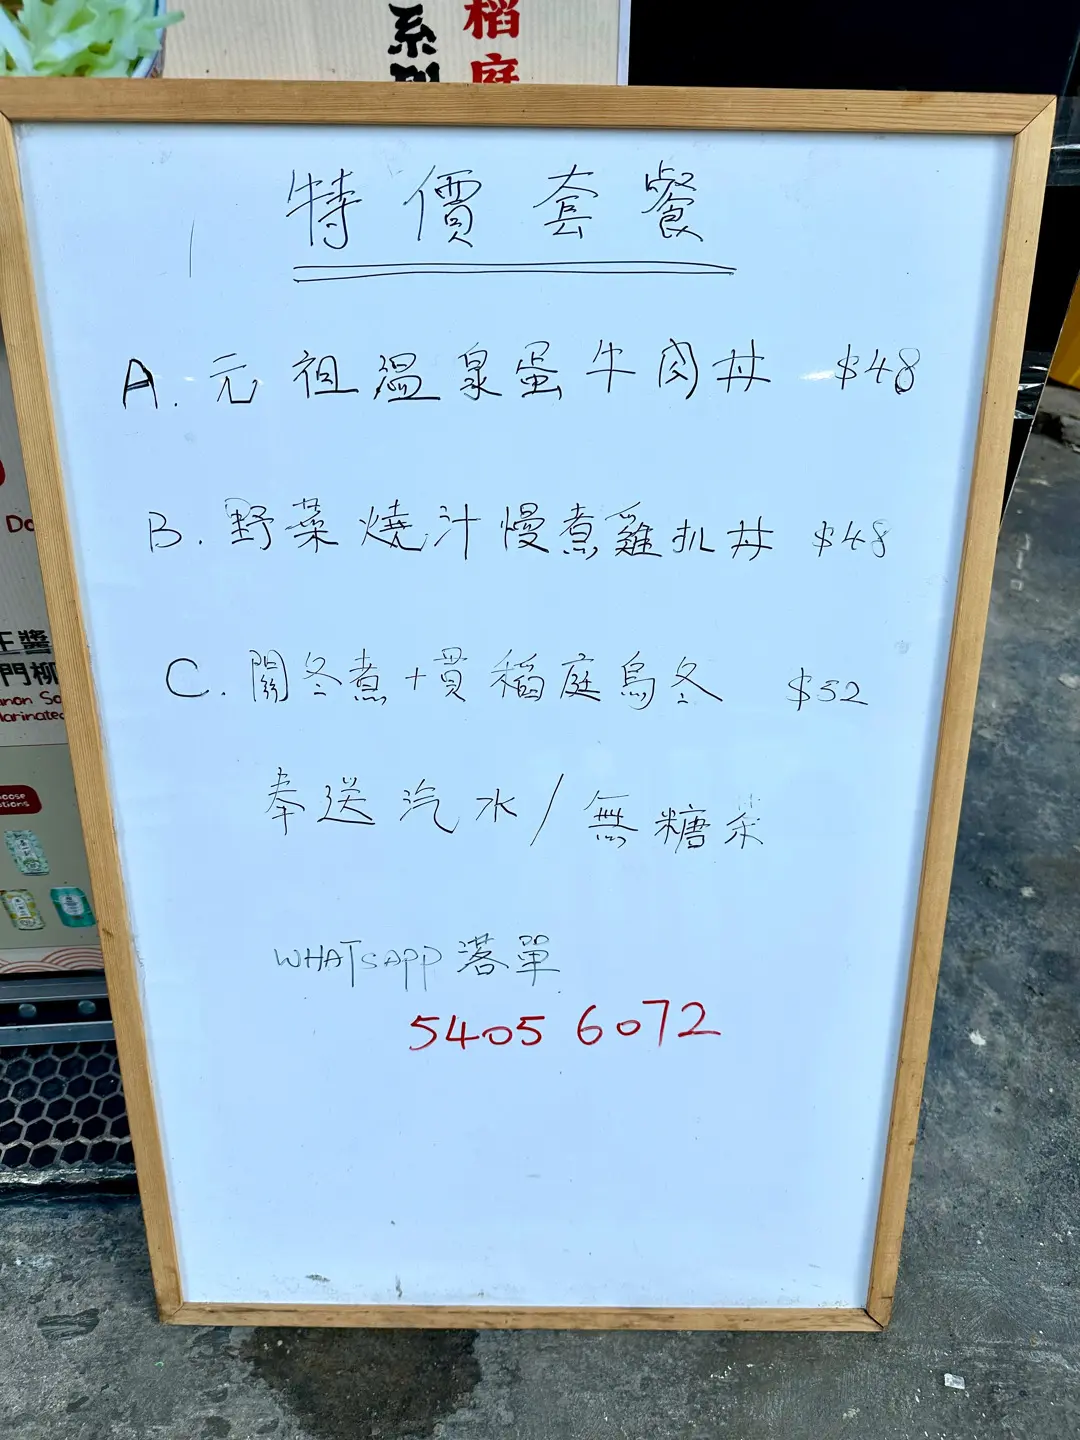 系列
稻庭
特價套餐
A. 元祖溫泉蛋牛肉丼 $48
B. 野菜燒汁慢煮雞扒丼 $48
C. 關冬煮+貫稻庭烏冬 $52
奉送汽水/無糖茶
WHATSAPP 落單
5405 6072
醬
門柳